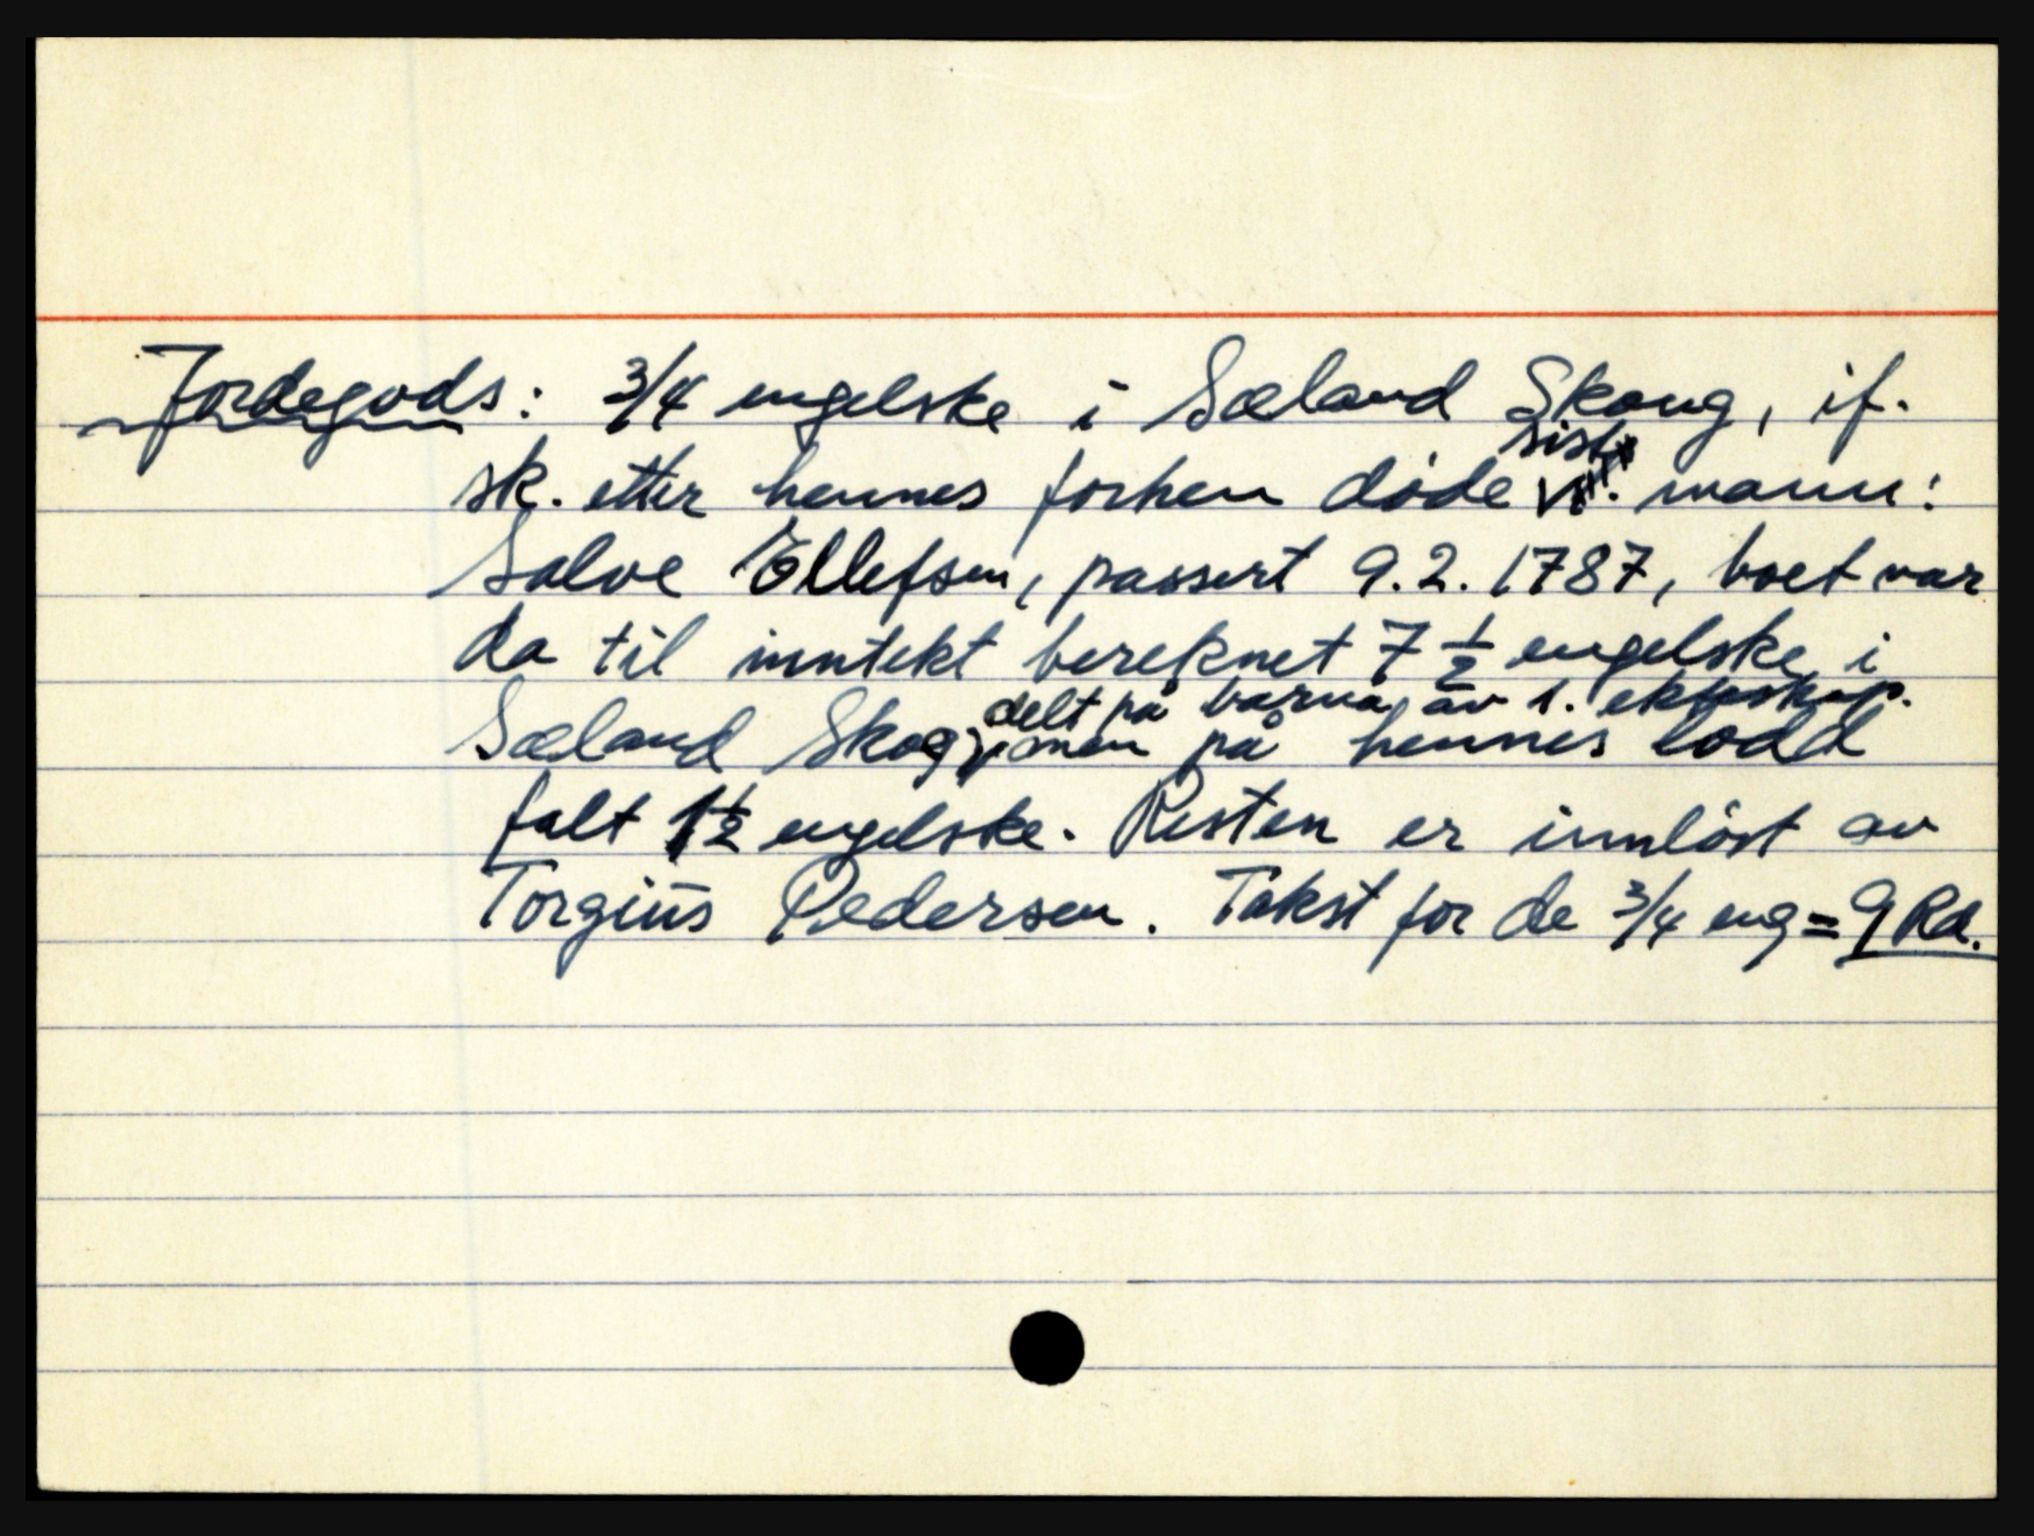 Jordegods: 3/4 engelske i Sæland Skoug, if.
siste
sk. etter hennes forhen døde mann:
Salve Ellefsen, passert 9.2.1787, boet var
da til inntekt bereknet 7 1/2 engelske i
delt på barna av 1. ekteskap.
Sæland Skog, men på hennes lodd
falt 1 1/2 engelske. Resten er innløst av
Torgius Pedersen. Takst for de 3/4 eng = 9 Rd.